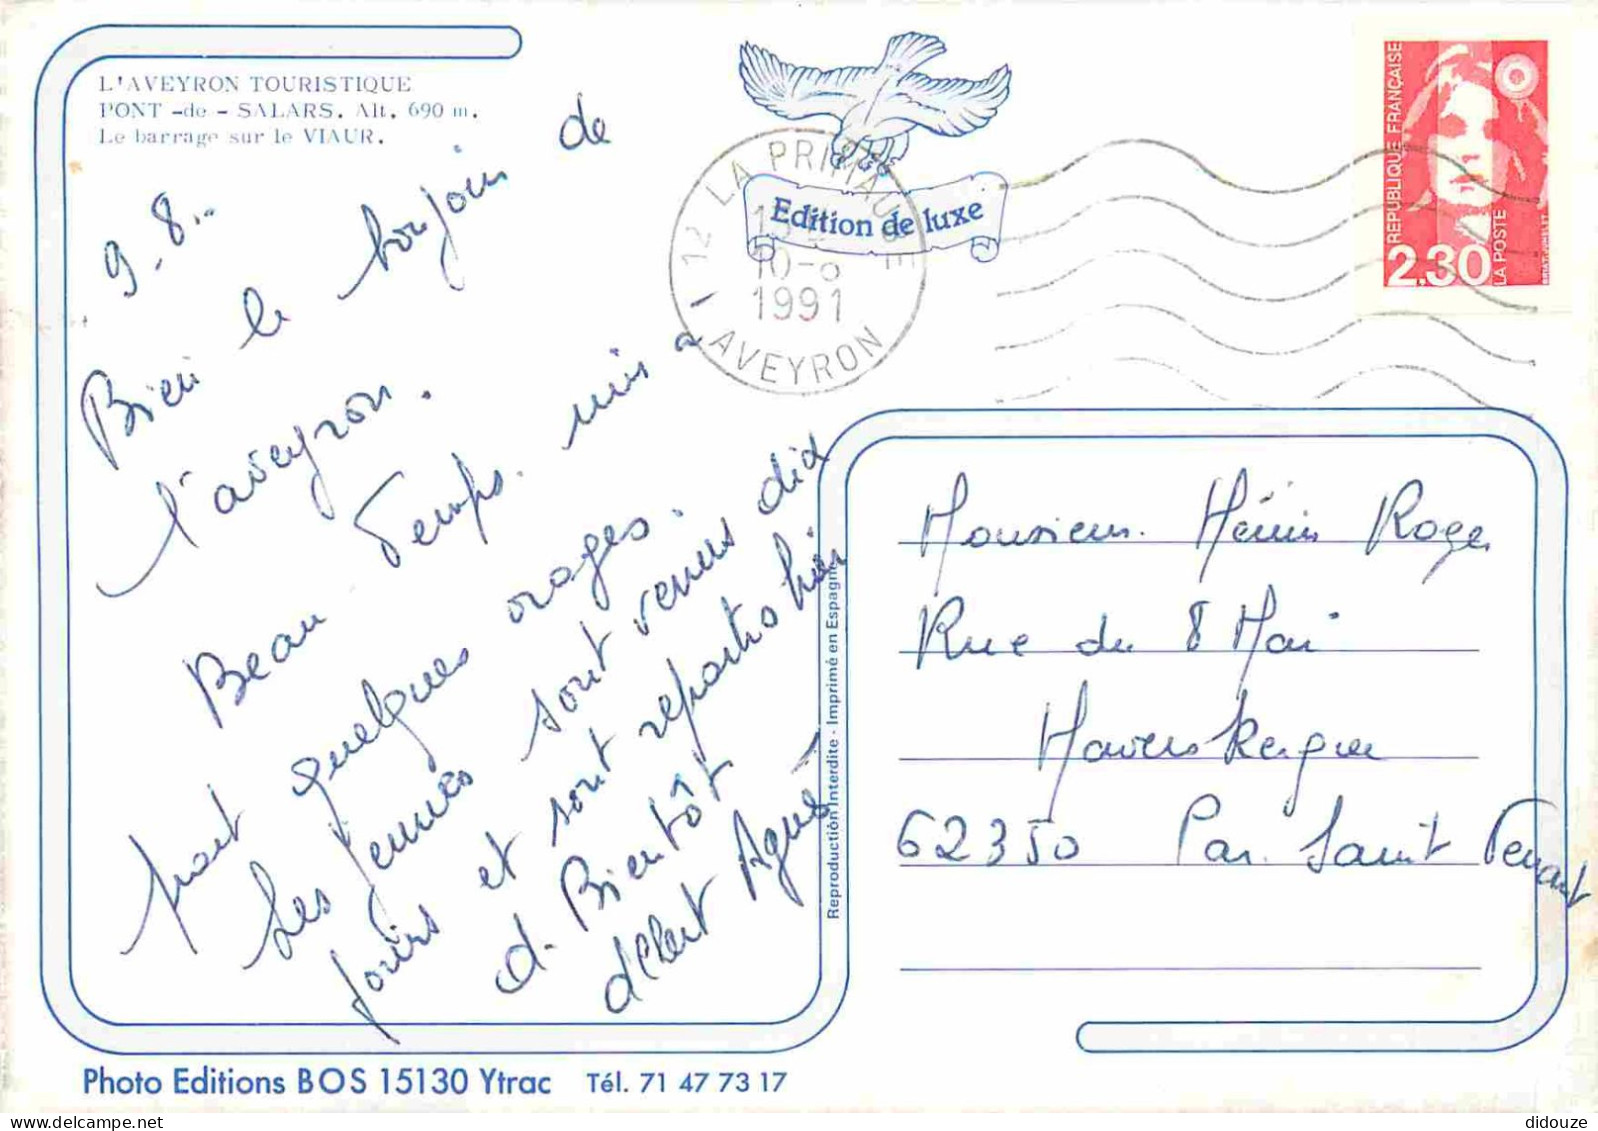 L'AVEYRON TOURISTIQUE
PONT -de- SALARS. Alt. 690 m.
Le barrage sur le VIAUR.
9-8...
Bien le bonjour de
l'aveyron.
Beau Temps. mis a
part quelques orages.
Les jeunes sont venus dix
jours et sont repartis hier
a Bientôt
Agnès
Edition de luxe
12 LA PRIMAUBE
10-8
1991
AVEYRON
RÉPUBLIQUE FRANÇAISE
2,30
LA POSTE
Reproduction Interdite - Imprimé en Espagne
Monsieur. Hénin Roger
Rue du 8 Mai
Haverskerque
62350 Par. Saint Venant
Photo Editions BOS 15130 Ytrac Tél. 71 47 73 17
didouze